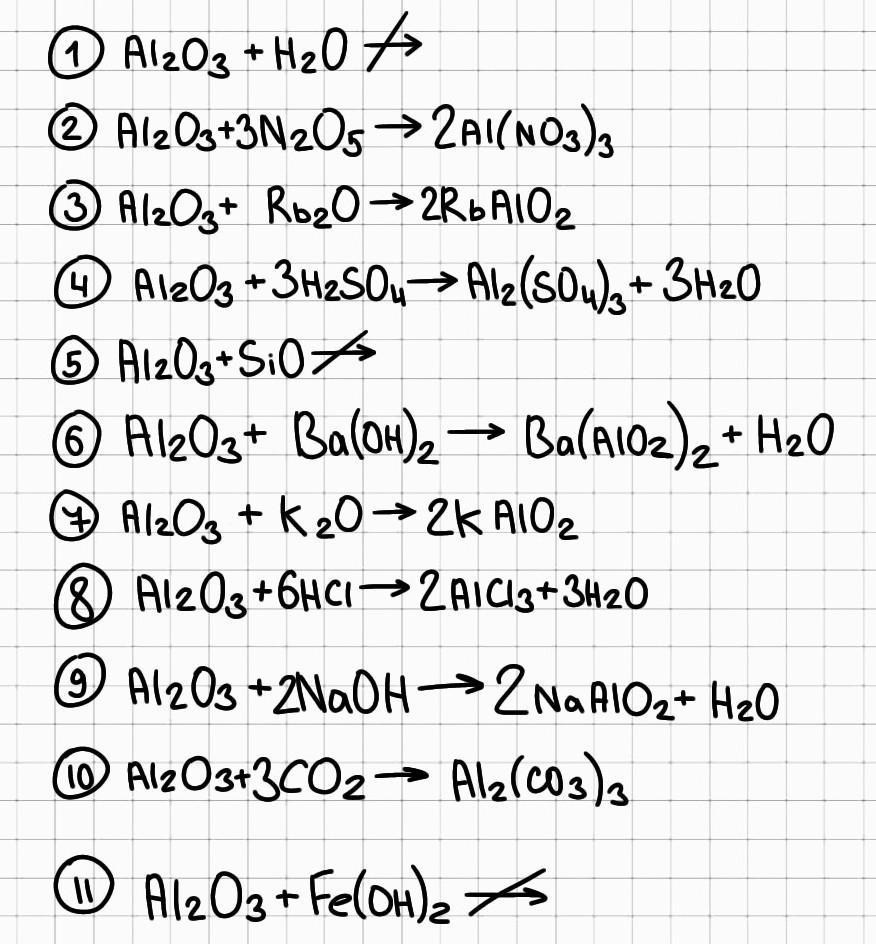 ① Al₂O₃ + H₂O ↛
② Al₂O₃+3N₂O₅ → 2Al(NO₃)₃
③ Al₂O₃+ Rb₂O → 2RbAlO₂
④ Al₂O₃ + 3H₂SO₄ → Al₂(SO₄)₃ + 3H₂O
⑤ Al₂O₃+SiO ↛
⑥ Al₂O₃+ Ba(OH)₂ → Ba(AlO₂)₂ + H₂O
⑦ Al₂O₃ + K₂O → 2KAlO₂
⑧ Al₂O₃+6HCl → 2AlCl₃+3H₂O
⑨ Al₂O₃ +2NaOH → 2NaAlO₂+ H₂O
⑩ Al₂O₃+3CO₂ → Al₂(CO₃)₃
⑪ Al₂O₃ + Fe(OH)₂ ↛